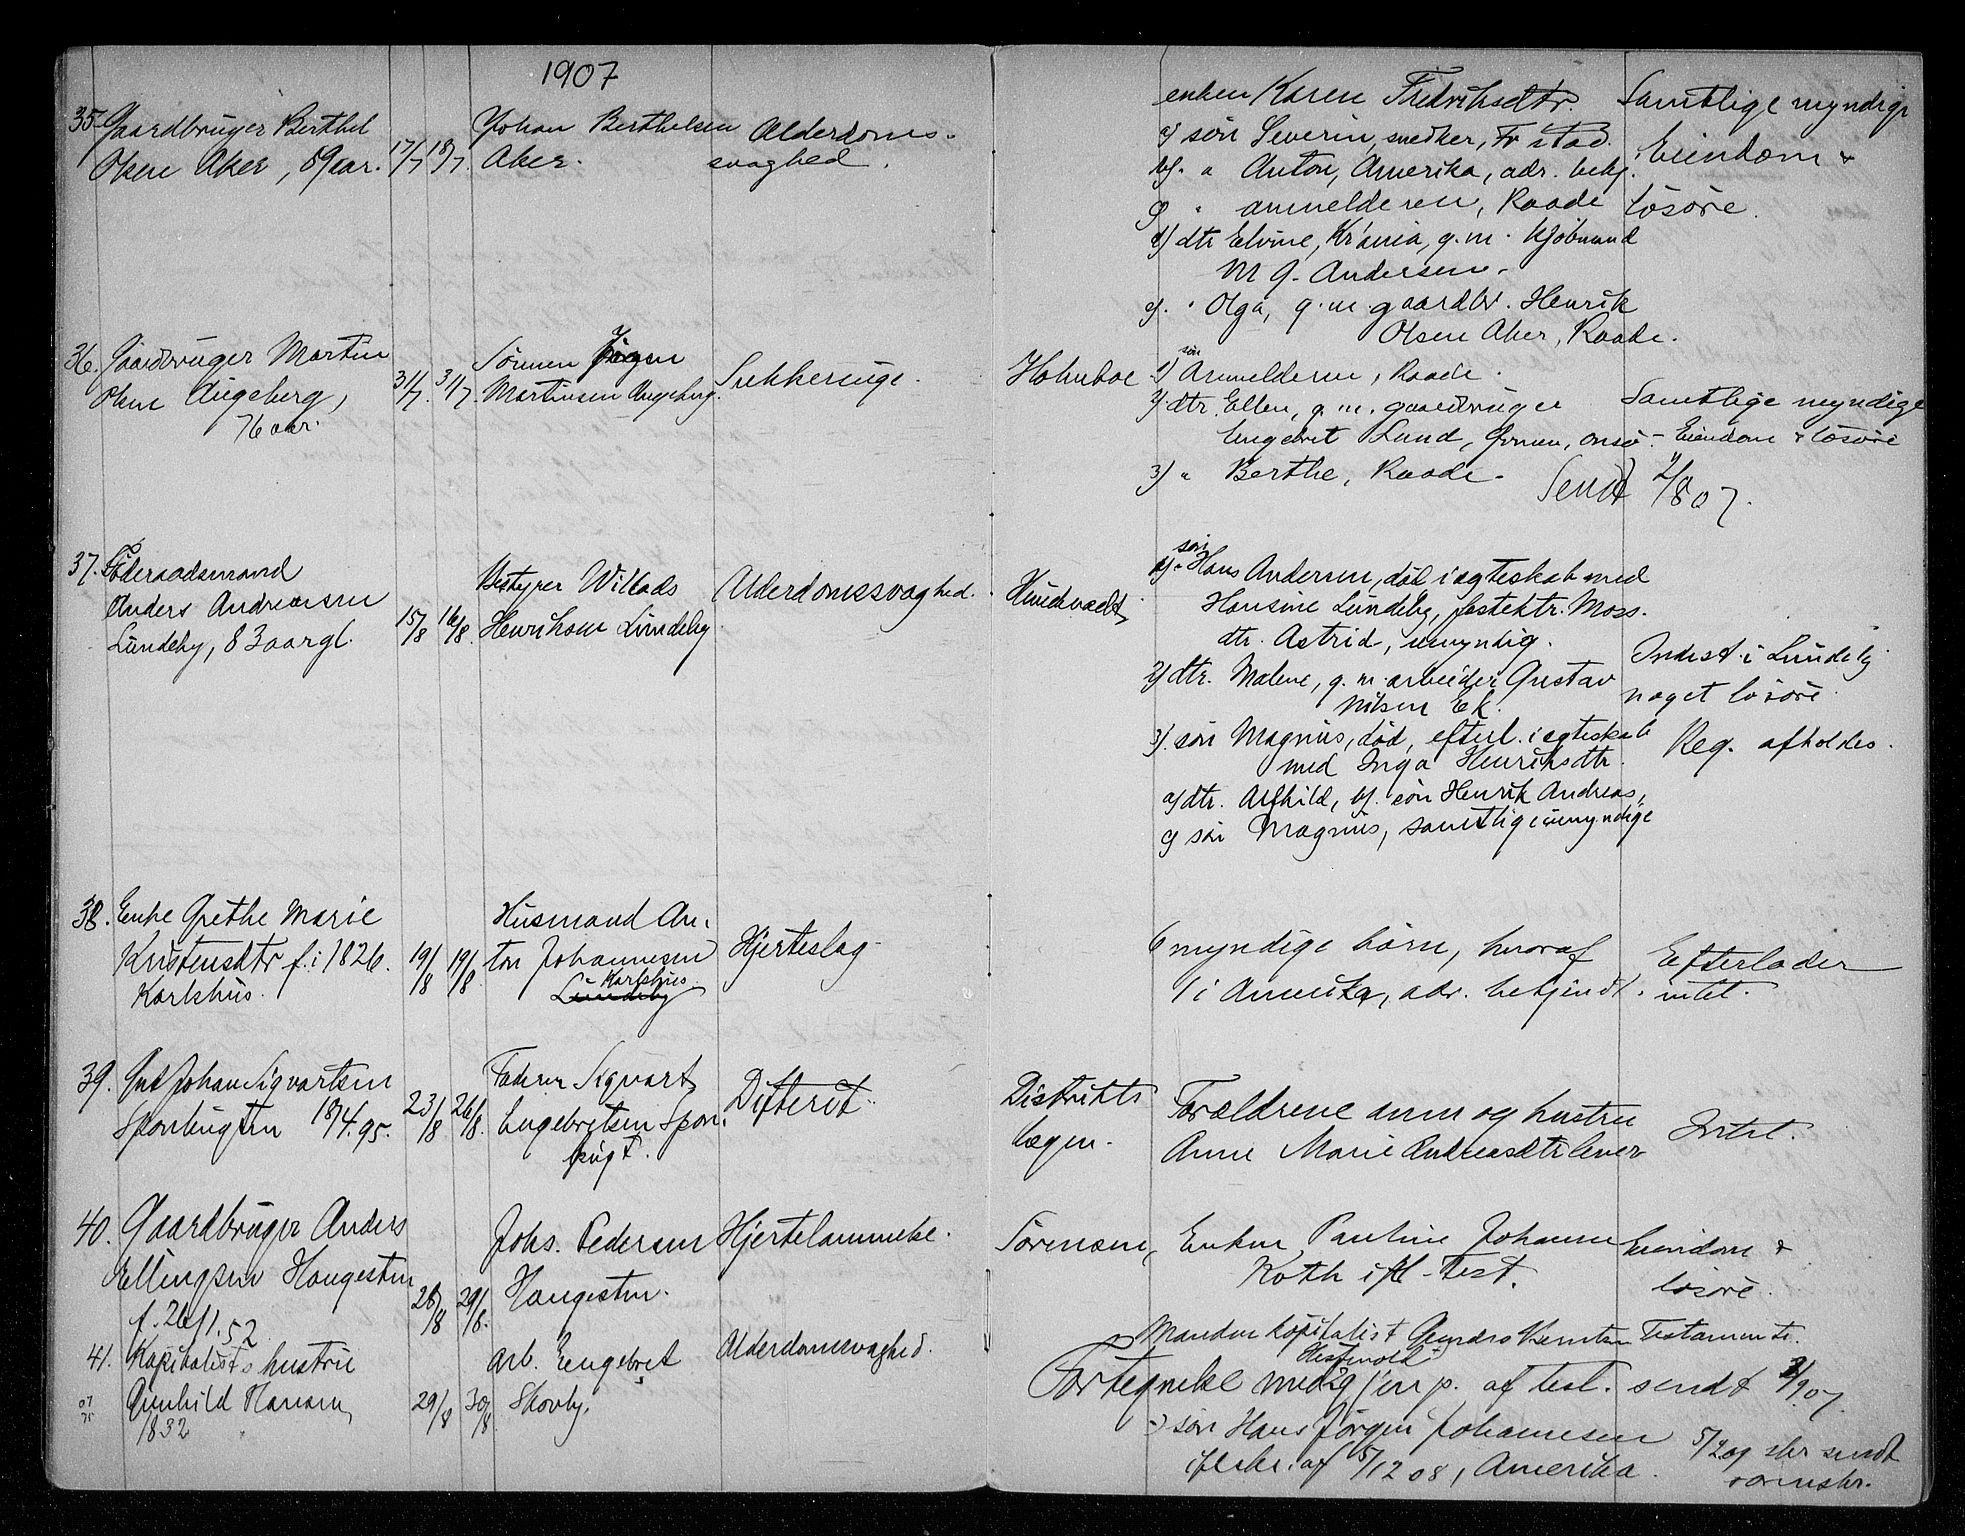 1907
35. Gaardbruger Berthel
Olsen Aker, 89 aar.
17/7 18/7
Johan Berthelsen
Aker.
Alderdoms-
svaghed.
enken Karen Fredriksdtr.
a) søn Severin, snedker, Fr.stad.
b) " Anton, Amerika, adr. bekj.
c) " anmelderen, Raade
d) dtr Elvine, Kr.ania, g.m. kjøbmand
M G. Andersen.
e) " Olga, g.m. gaardbr. Henrik
Olsen Aker, Raade.
Samtlige myndige
Eiendom &
løsøre.
36. Gaardbruger Martin
Olsen Augeberg,
76 aar.
31/7. 31/7
Sønnen Jørgen
Martinsen Augeberg.
Sukkersyge.
Holmboe
søn
1) Anmelderen, Raade.
2) dtr. Ellen, g.m. gaardbruger
Engebret Lund, Onsø
3) " Berthe, Raade.
Samtlige myndige
Eiendom & løsøre
Sendt 2/8 07.
37. Føderaadsmand
Anders Andreassen
Lundeby, 83 aar gl.
15/8 16/8
Bestyrer Willads
Henriksen Lundeby
Alderdomssvaghed.
søn
1) Hans Andersen, død i egteskab med
Hansine Lundeby, Moss.
dtr. Astrid, umyndig.
2) dtr. Malene, g.m. arbeider Gustav
Nilsen Ek.
3) søn Magnus, død, efterl. i egteskab
med Inga Henriksdtr.
a) dtr. Alfhild, b). søn Henrik Andreas,
c) søn Magnus, samtlige umyndige
Indest. i Lundeby
noget løsøre.
Reg. afholdes.
38. Enke Grethe Marie
Kristensdtr f. i 1826.
Karlshus.
19/8 19/8
Husmand An-
ton Johannesen
Karlshus.
Lundeby
Hjerteslag
6 myndige børn, hvoraf
1 i Amerika, adr. bekjendt.
Efterlader
intet.
39. Gut Johan Sigvartsen
18/4.95.
23/8 26/8.
Faderen Sigvart
Engebretsen Spon-
Difterit.
Distrikts
lægen.
Forældrene anm og hustru
Anne Marie Andreasdtr lever
Intet.
40. Gaardbruger Anders
Ellingsen Haugesten
f. 26/1.52
26/8 29/8.
Johs. Pedersen
Haugesten.
Hjertelammelse.
Sørensen,
Enken Pauline Johanne
Roth ifl. Test.
Eiendom &
løsøre.
41. Kapitalists hustru
Gunhild Hansen,
1832
29/8 30/8
Arb. Engebret
Skovby.
Alderdomssvaghed.
Manden kapitalist
Testamente.
Fortegnelse med gjenp. af test. sendt 3/9 07.
søn Hans Jørgen Johannesen
ifl skr. af 15/12 08, Amerika.
5/2 09 skr sendt